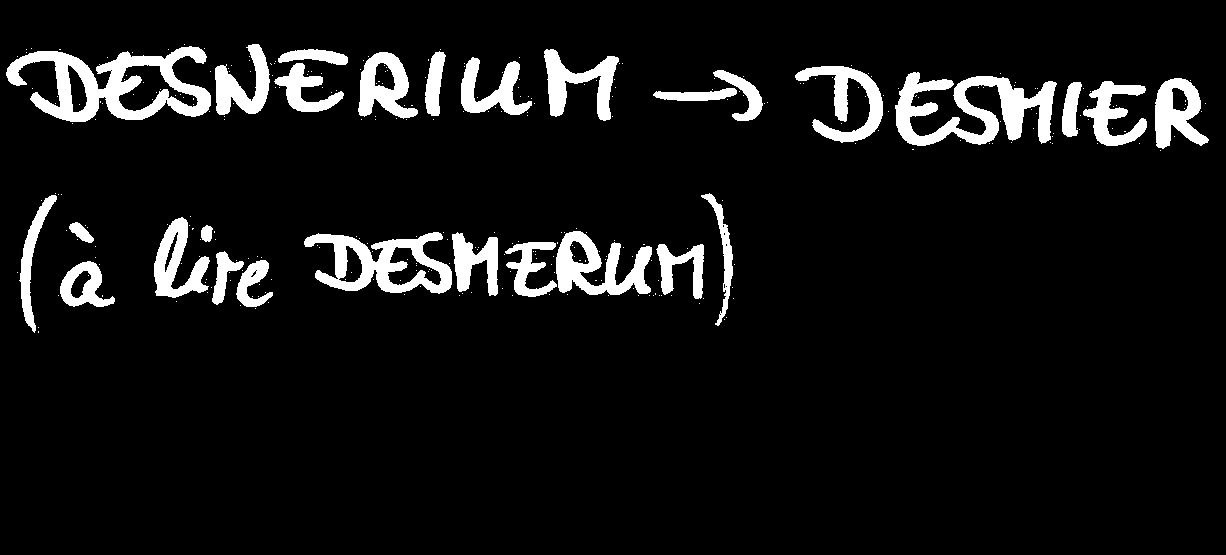 DESNERIUM → DESMIER
(à lire DESMERUM)